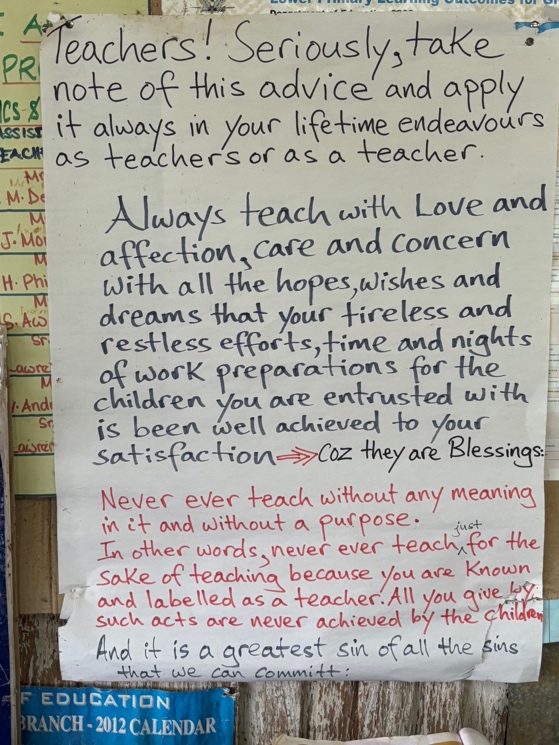 Teachers! Seriously, take
note of this advice and apply
it always in your lifetime endeavours
as teachers or as a teacher.
Always teach with Love and
affection, care and concern
with all the hopes, wishes and
dreams that your tireless and
restless efforts, time and nights
of work preparations for the
children you are entrusted with
is been well achieved to your
satisfaction ⇒> Coz they are Blessings:
Never ever teach without any meaning
in it and without a purpose.
In other words, never ever teach just for the
sake of teaching because you are known
and labelled as a teacher. All you give by
such acts are never achieved by the children
And it is a greatest sin of all the sins
that we can committ:
Lower Primary Learning Outcomes for
PR
ICS-S
ASSIST
EACH
M. De
J. Moi
H. Phi
S. Aw
F EDUCATION
BRANCH - 2012 CALENDAR